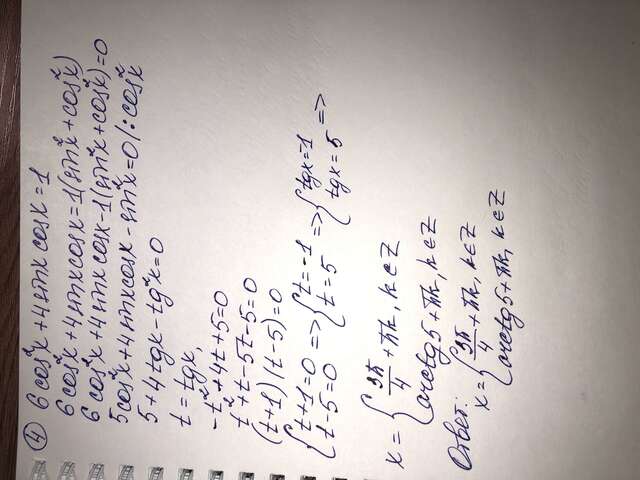 ④ 6cos²x + 4sinx cosx = 1
6cos²x + 4sinxcosx = 1(sin²x + cos²x)
6cos²x + 4sinxcosx - 1(sin²x + cos²x) = 0
5cos²x + 4sinxcosx - sin²x = 0 |: cos²x
5 + 4tgx - tg²x = 0
t = tgx,
-t² + 4t + 5 = 0
t² + t - 5t - 5 = 0
(t+1)(t-5) = 0
{t+1=0 => {t=-1 => {tgx=-1
{t-5=0 {t=5 {tgx=5 =>
x = {3π/4 + πk, k∈Z
{arctg5 + πk, k∈Z
Ответ:
x = {3π/4 + πk, k∈Z
{arctg5 + πk, k∈Z